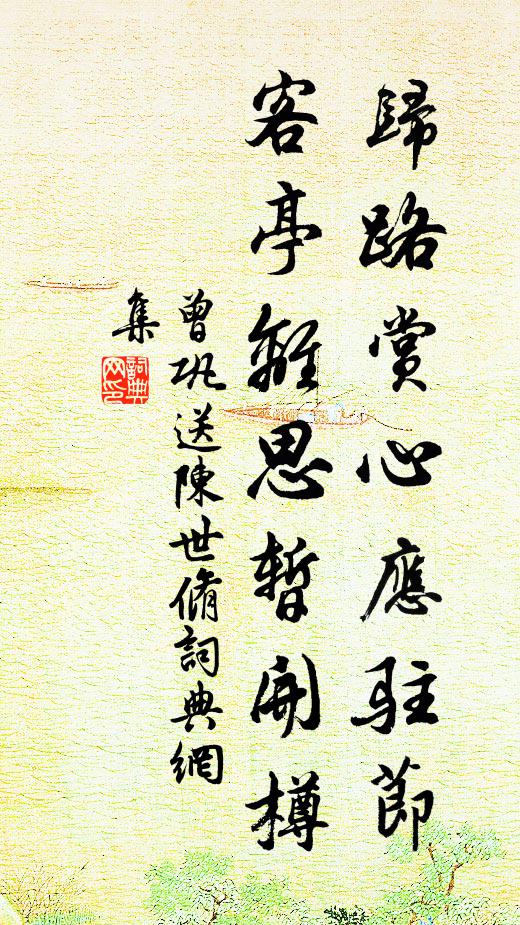 歸路賞心應駐節
客亭離思暫開樽
曾鞏送陳世脩詞典網
集
詞典
网印